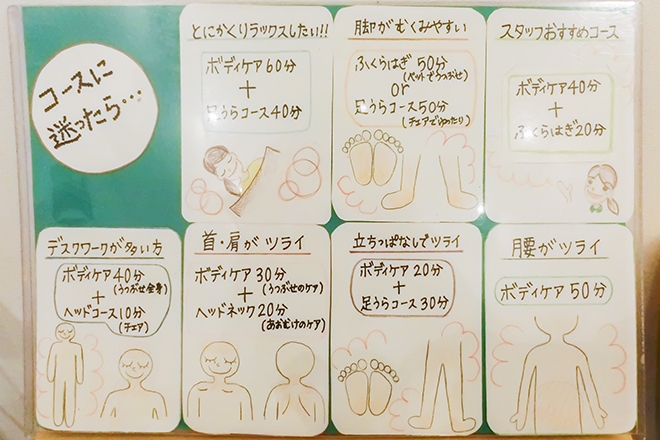 コースに
迷ったら…
とにかくリラックスしたい!!
ボディケア60分
+
足うらコース40分
脚がむくみやすい
ふくらはぎ50分
(ベットでうつぶせ)
or
足うらコース50分
(チェアでゆったり)
スタッフおすすめコース
ボディケア40分
+
ふくらはぎ20分
デスクワークが多い方
ボディケア40分
(うつぶせ全身)
+
ヘッドコース10分
(チェア)
首・肩がツライ
ボディケア30分
(うつぶせのケア)
+
ヘッドネック20分
(あおむけのケア)
立ちっぱなしでツライ
ボディケア20分
+
足うらコース30分
腰がツライ
ボディケア50分